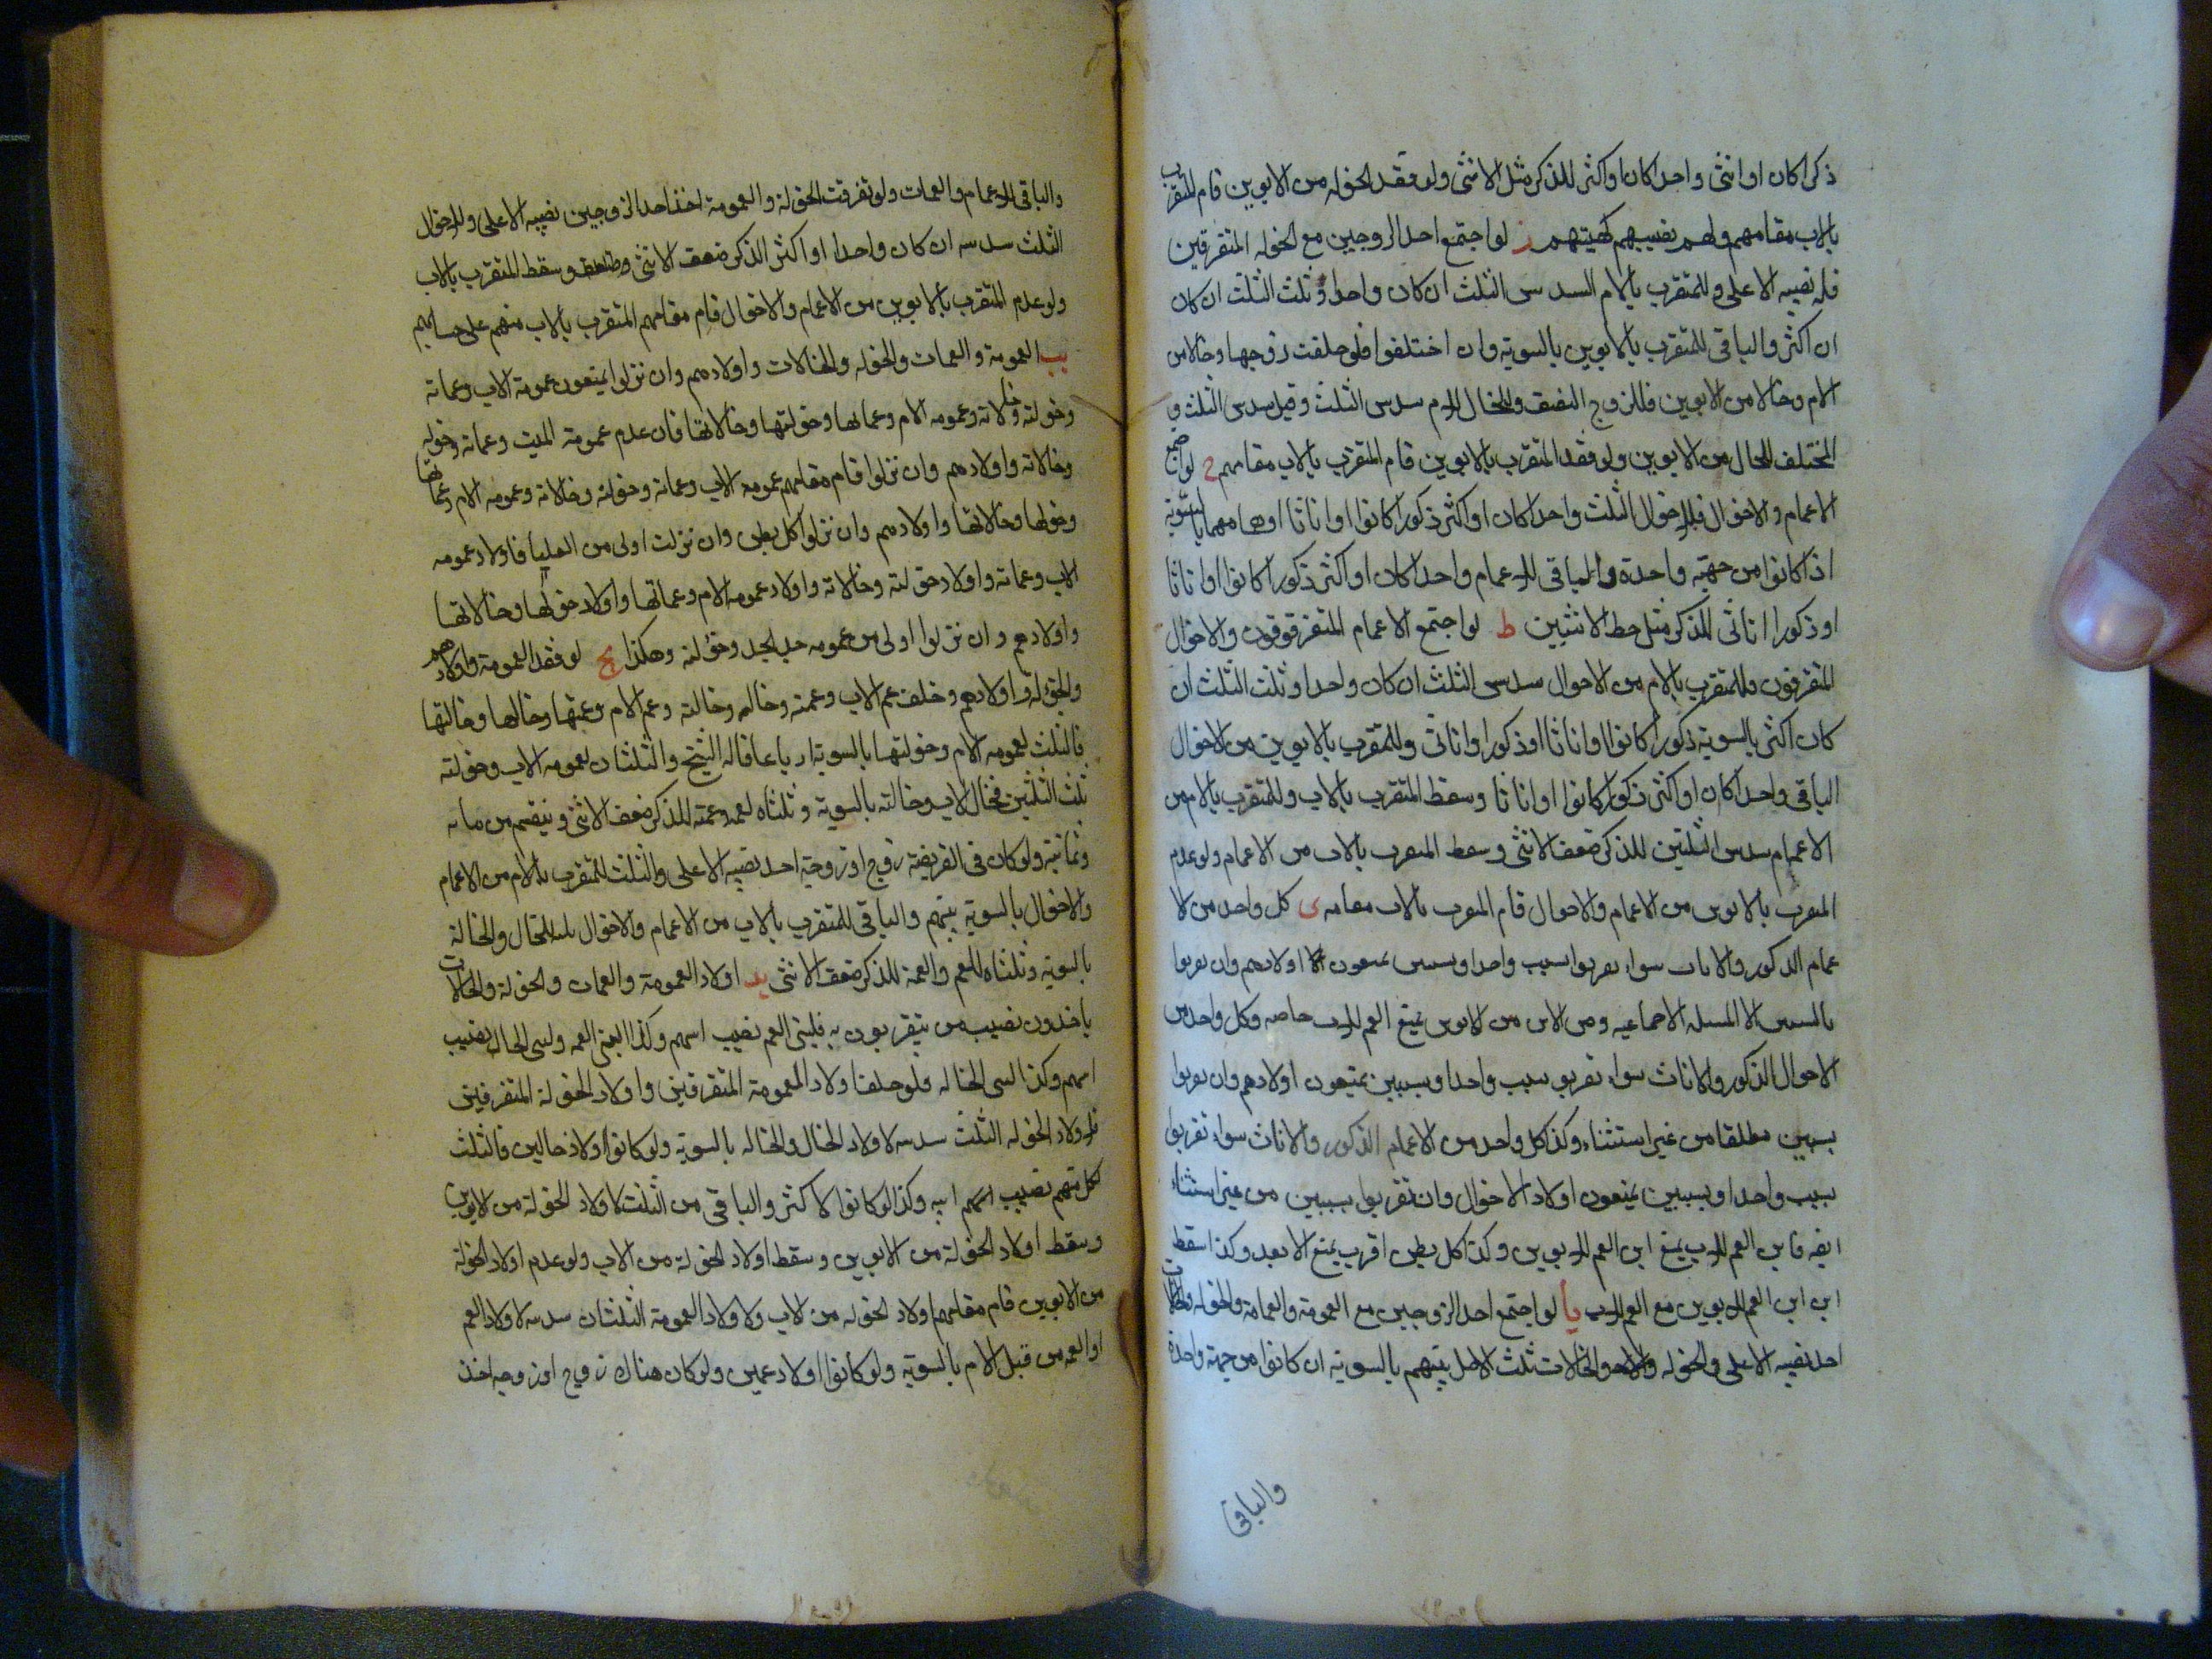 ذكرا كان او انثى واحدا كان او اكثر للذكر مثل الانثى ولو فقد الخوله من الابوين قام المتقرب
بالاب مقامهم ولهم نصيبهم كهيئتهم ز لو اجتمع احد الزوجين مع الخوله المتفرقين
فله نصيبه الاعلى وللمتقرب بالام السدس الثلث ان كان واحدا وثلث الثلث ان كان
ان اكثر والباقى للمتقرب بالابوين بالسويه وان اختلفوا فلو خلفت زوجها وخالا من
الام وخالا من الابوين فللزوج النصف وللخال للام سدس الثلث وقيل سدس الثلث و
المختلف للخال من الابوين ولو فقد المتقرب بالابوين قام المتقرب بالاب مقامهم ح لو اجتمع
الاعمام والاخوال فللاخوال الثلث واحدا كان او اكثر ذكورا كانوا او اناثا او هما مهما بالسوية
اذا كانوا من جهة واحدة والباقى للاعمام واحدا كان او اكثر ذكورا كانوا او اناثا
او ذكورا اناثى للذكر مثل حظ الانثيين ط لو اجتمع الاعمام المتفرقوقون والاخوال
المتفرقون وللمتقرب بالام من الاخوال سدس الثلث ان كان واحدا وثلث الثلث ان
كان اكثر بالسوية ذكورا كانوا او اناثا او ذكورا واناثى وللمتقرب بالابوين من الاخوال
الباقى واحدا كان او اكثر ذكورا كانوا او اناثا وسقط المتقرب بالاب وللمتقرب بالام من
الاعمام سدس الثلثين للذكر ضعف الانثى وسقط المتقرب بالاب من الاعمام ولو عدم
المتقرب بالابوين من الاعمام والاخوال قام المتقرب بالاب مقامه ى كل واحد من الا
عمام الذكور والاناث سواء تقربوا بسبب واحد او بسببين يمنعون اولادهم وان تقربوا
بالسببين الا المسئلة الاجماعيه وهى الابن من الابوين يمنع العم للاب خاصه وكل واحد من
الاخوال الذكور والاناث سواء تقربو بسبب واحد او بسببين يمنعون اولادهم وان تقربوا
بسببين مطلقا من غير استثناء وكذا كل واحد من الاعمام الذكور والاناث سواء تقربوا
بسبب واحد او بسببين يمنعون اولاد الاخوال وان تقربوا بسببين من غير استثناء
ايضه فابن العم للاب يمنع ابن العم للابوين وكذا كل بطن اقرب يمنع الابعد وكذا سقط
ابن ابن العم للابوين مع العم للاب يا لو اجتمع احد الزوجين مع العمومة والعمامة والخوله والخالات
احد نصيبه الاعلى وللخوله والخالات ثلث الاصل بينهم بالسوية ان كانوا من جهة واحدة
والباقى
والباقى للاعمام والعمات ولو تفرقت الخولة والعمومة اخذ احد الزوجين نصيبه الاعلى وللاخوال
الثلث سدسه ان كان واحدا او اكثر الذكر ضعف الانثى وسقط المتقرب بالاب
ولو عدم المتقرب بالابوين من الاعمام والاخوال قام مقامهم المتقرب بالاب منهم على حسابهم
يب العمومة والعمات والخوله والخالات واولادهم وان نزلوا يمنعون عمومة الاب وعماته
وخولته وخالاته وعمومه الام وعماتها وخولتها وخالاتها فان عدم عمومة الميت وعماته وخوله
وخالاته واولادهم وان نزلوا قام مقامهم عمومه الاب وعماته وخولته وخالاته وعمومه الام وعماتها
وخولها وخالاتها واولادهم وان نزلوا كل بطن وان نزلت اولى من العليا فاولاد عمومه
الاب وعماته واولاد خولته وخالاته واولاد عمومه الام وعماتها واولاد خولها وخالاتها
واولادهم وان نزلوا اولى من عمومه جد الجد وخولته وهكذا يج لو فقد العمومة واولادهم
والخوله واولادهم وخلف عم الاب وعمته وخاله وخالته وعم الام وعمتها وخالها وخالتها
فالثلث لعمومه الام وخولتها بالسوية ارباعا قاله الشيخ والثلثان لعمومه الاب وخولته
ثلث الثلثين لخال الاب وخالته بالسوية وثلثاه لعمه وعمته للذكر ضعف الانثى وتنقسم من مائه
وثمانية ولو كان فى الفريضة زوج او زوجة احد نصيبه الاعلى والثلث للمتقرب بالام من الاعمام
والاخوال بالسوية بينهم والباقى للمتقرب بالاب من الاعمام والاخوال ثلثه للخال والخالة
بالسوية وثلثاه للعم والعمة للذكر ضعف الانثى يد اولاد العمومة والعمات والخولة والخالات
ياخذون نصيب من يتقربون به فلبنى العم نصيب اسهم وكذا لبنى العمه ولبنى الخال نصيب
اسهم وكذا لبنى الخاله فلو خلف اولاد العمومة المتفرقين واولاد الخولة المتفرقين
فلاولاد الخوله الثلث سدسه لاولاد الخال والخاله بالسوية ولو كانوا اولاد خالين فالثلث
لكل منهم نصيب ابيه وكذا لو كانوا اكثر والباقى من الثلث لاولاد الخولة من الابوين
وسقط اولاد الخولة من الابوين وسقط اولاد الخولة من الاب ولو عدم اولاد الخولة
من الابوين قام مقامهم اولاد الخوله من الاب ولاولاد العمومة الثلثان سدسه لاولاد العم
او العمه من قبل الام بالسوية ولو كانوا اولاد عمين ولو كان هناك زوج او زوجه اخذ